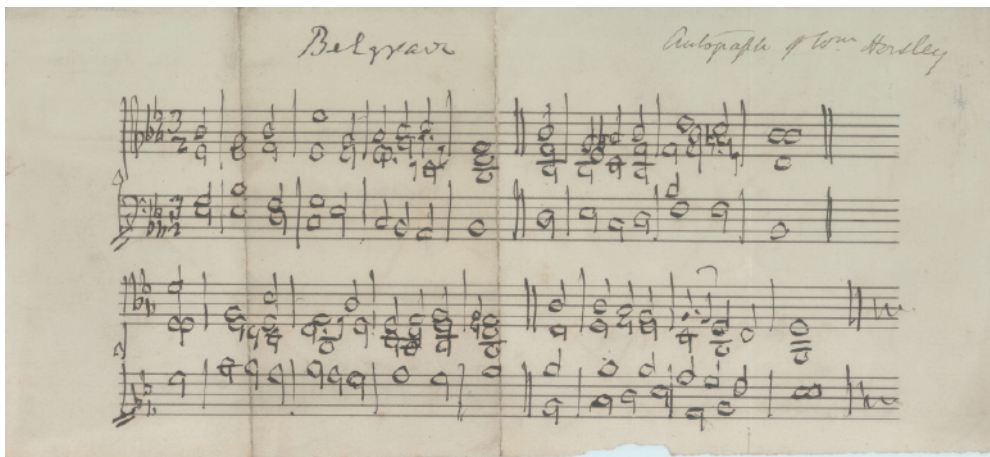 Belgrave
Autograph of Wm Horsley
3
2
3
2